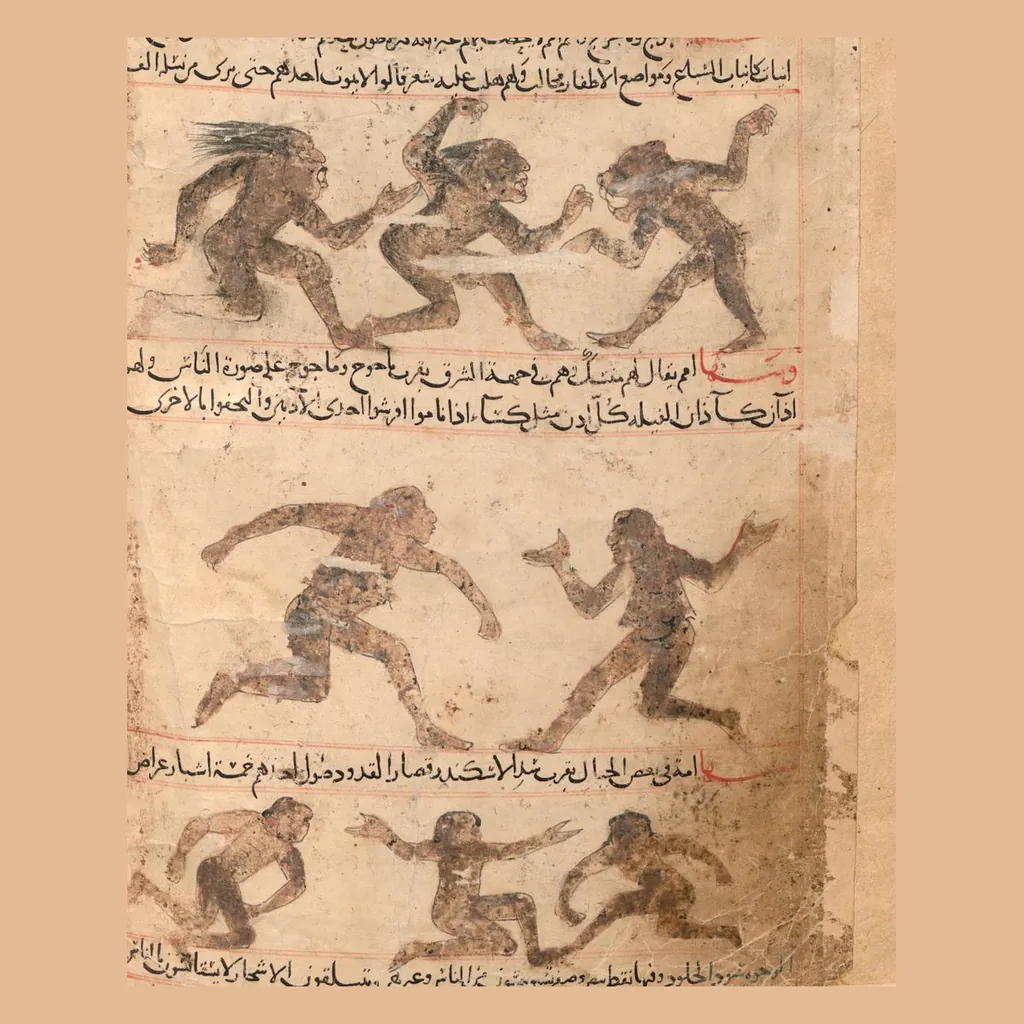 انياب كانياب السباع ومواضع الاظفار مخالب ولهم هلب عليه شعر قالوا لا يموت احدهم حتى يرى من نسله الف
ومنها امم يقال لهم منسك وهم في جهة الشرق بقرب ياجوج وماجوج على صورة الناس ولهم
اذان كآذان الفيله كل اذن مثل كساء اذا ناموا افرشوا احدى الاذنين والتحفوا بالاخرى
ومنها امة في بعض الجبال بقرب سد الاسكندر قصار القدود طول احدهم خمسة اشبار عراض
الوجوه سود الجلود وفيها نقط بيض وصفر من الناس وغيرهم ويتسلقون الاشجار لا